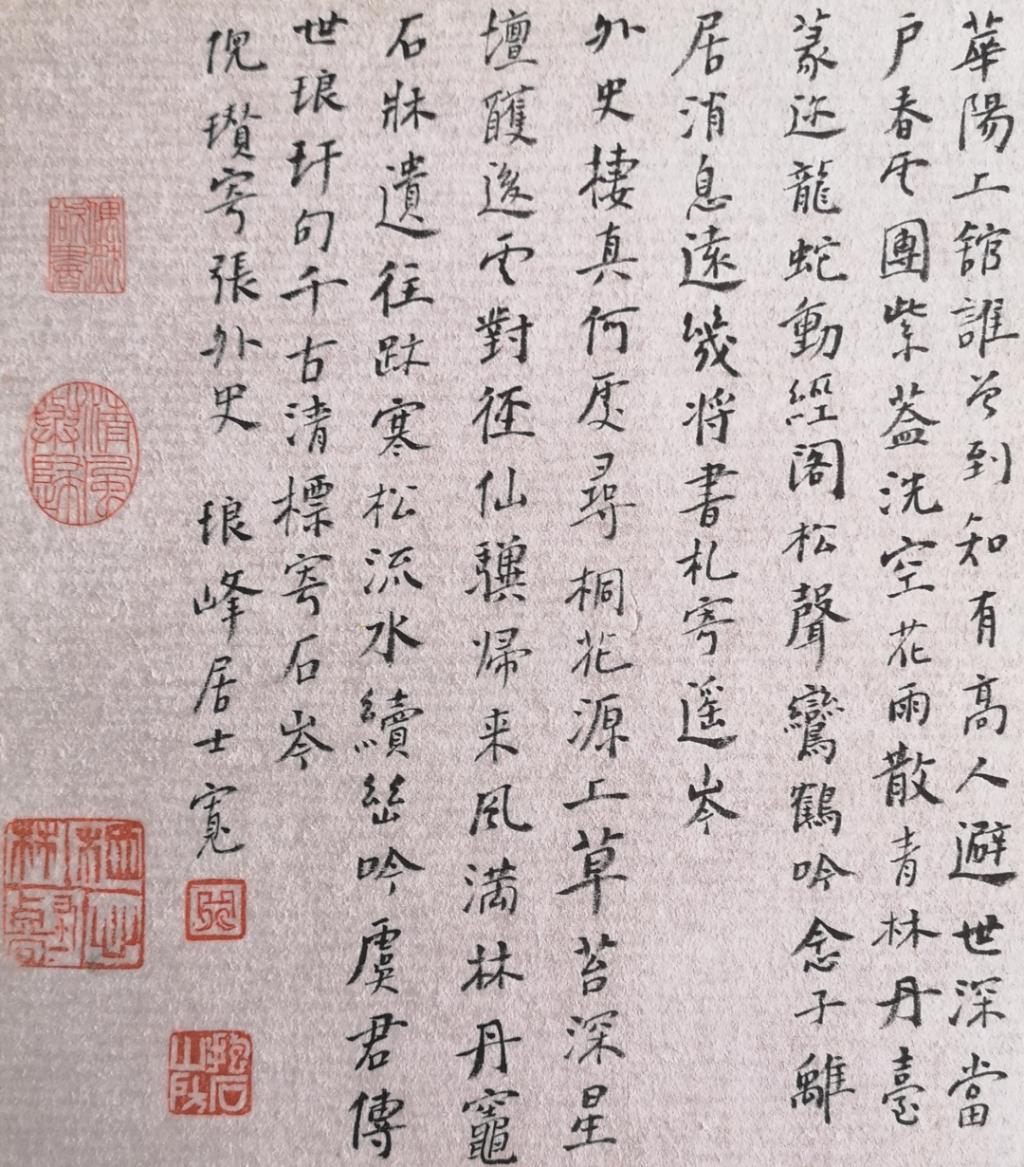 華陽上館誰曾到知有高人避世深當
戶春雲團紫蓋洗空花雨散青林丹臺
篆迹龍蛇動經閣松聲鸞鶴吟念子離
居消息遠幾將書札寄遥岑
外史棲真何處尋桐花源上草苔深星
壇醮後雲對徑仙驥歸来風满林丹竈
石牀遺往跡寒松流水續絲吟虞君傳
世琅玕句千古清標寄石岑
倪瓚寄張外史 琅峰居士寬